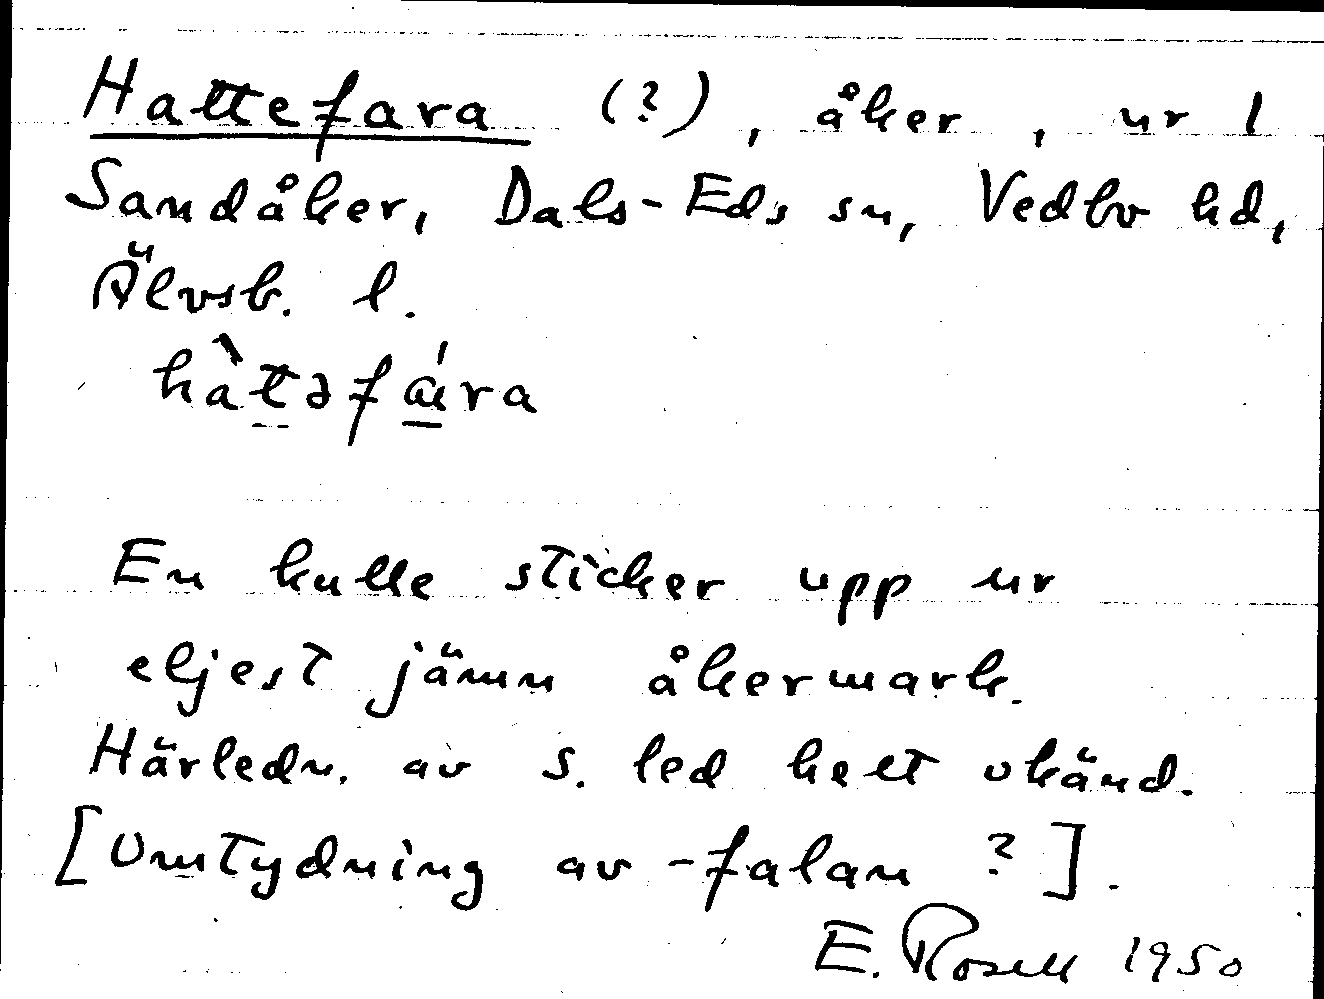 Hattefara (?), åker, ur 1
Sandåker, Dals-Eds sn, Vedbo hd,
Älvsb. l.
hàtəfára
En kulle sticker upp ur
eljest jämn åkermark.
Härledn. av s. led helt okänd.
[Omtydning av -falan ?].
E. Rosell 1950